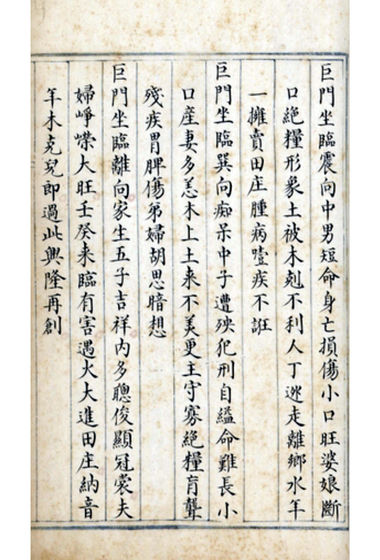 巨門坐臨震向中男短命身亡損傷小口旺婆娘斷
口絕糧形象土被木剋不利人丁逃走離鄉水年
一擁賣田庄腫病噎疾不誑
巨門坐臨巽向痴呆中子遭殃犯刑自縊命難長小
口産妻多恙木上土来不美更主守寡絕糧肓聾
殘疾胃脾傷弟婦胡思暗想
巨門坐臨離向家生五子吉祥内多聰俊顯冠裳夫
婦崢嶸大旺壬癸来臨有害遇火大進田庄納音
年木克兒即過此興隆再創